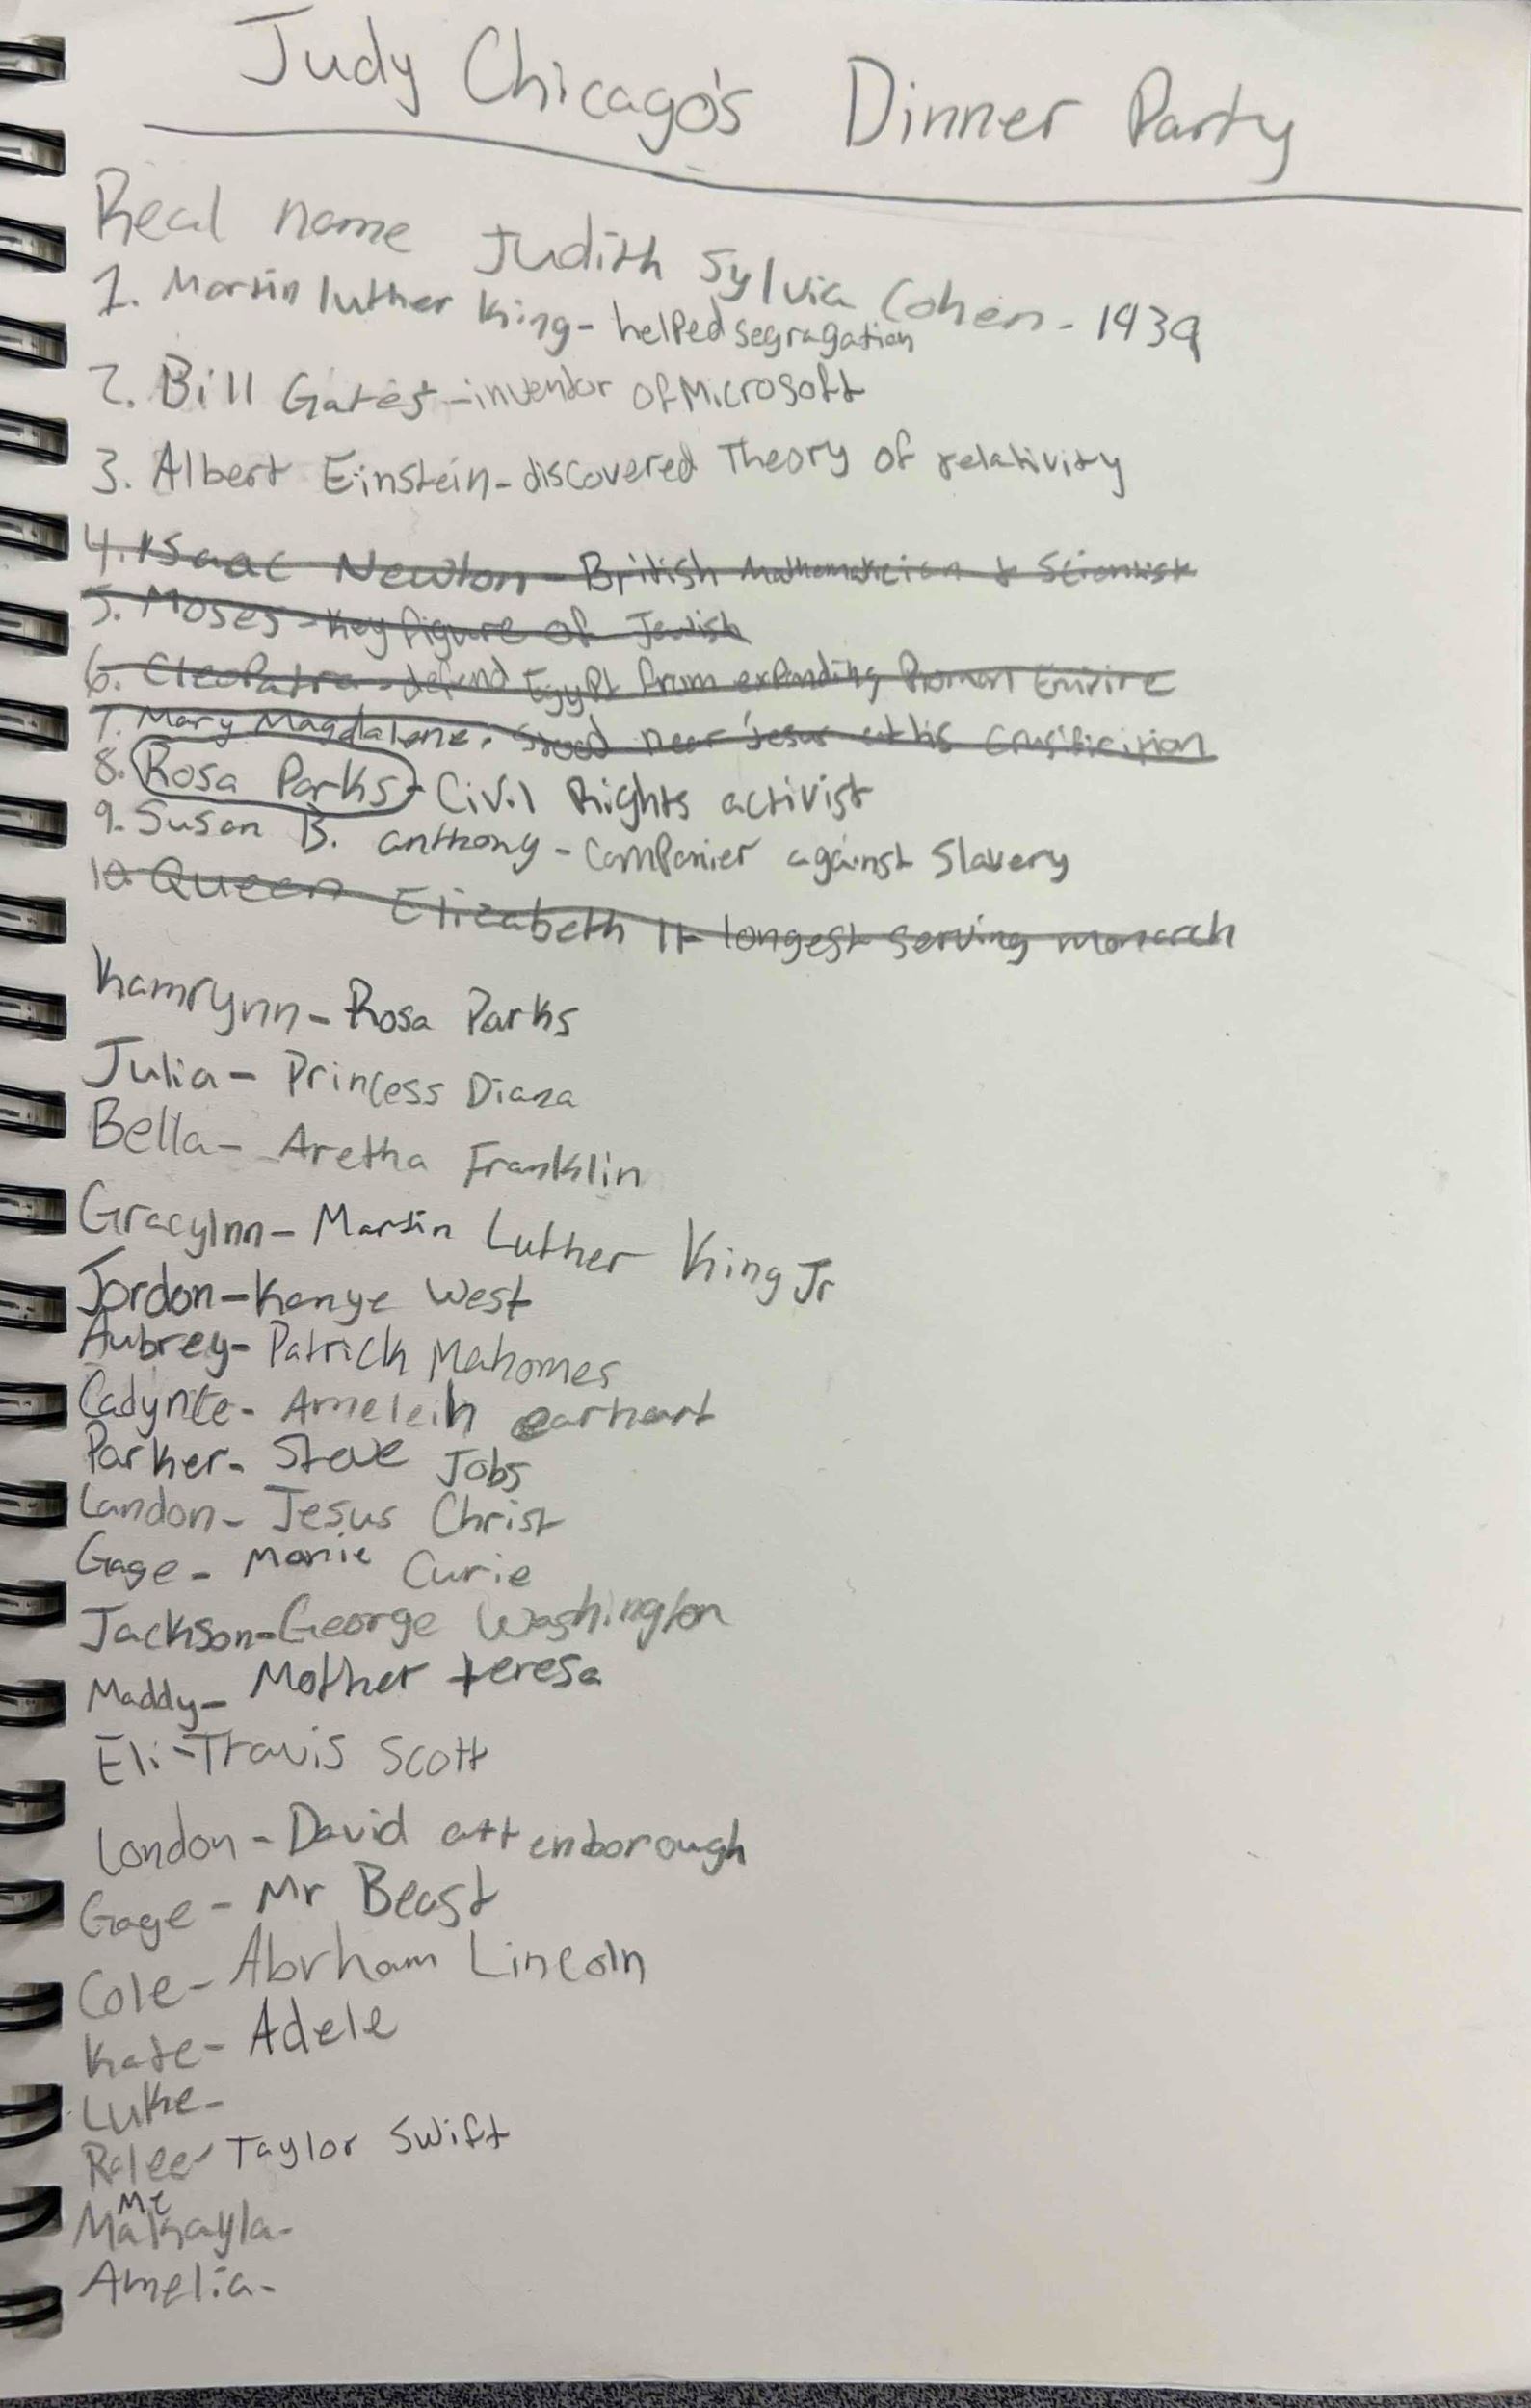 Judy Chicago's Dinner Party
Real name Judith Sylvia Cohen - 1939
1. Martin luther King - helped segragation
2. Bill Gates - inventor of Microsoft
3. Albert Einstein - discovered Theory of relativity
4. Isaac Newton - British Mathematician & Scientist
5. Moses - Key figure of Jewish
6. Cleopatra - defend Egypt from expanding Roman Empire
7. Mary Magdalene. Stood near Jesus at his
8. Rosa Parks - Civil Rights activist
9. Susan B. anthony - Companier against Slavery
10. Queen Elizabeth II longest serving monarch
Kamrynn - Rosa Parks
Julia - Princess Diana
Bella - Aretha Franklin
Gracylnn - Martin Luther King Jr
Jordon - Kanye West
Aubrey - Patrick Mahomes
earhart
Parker - Steve Jobs
Landon - Jesus Christ
Gage - Marie Curie
Jackson - George Washington
Maddy - Mother teresa
Eli - Travis Scott
London - David attenborough
Gage - Mr Beast
Cole - Abrham Lincoln
Kate - Adele
Luke -
Ralee - Taylor Swift
Me
Makayla -
Amelia -